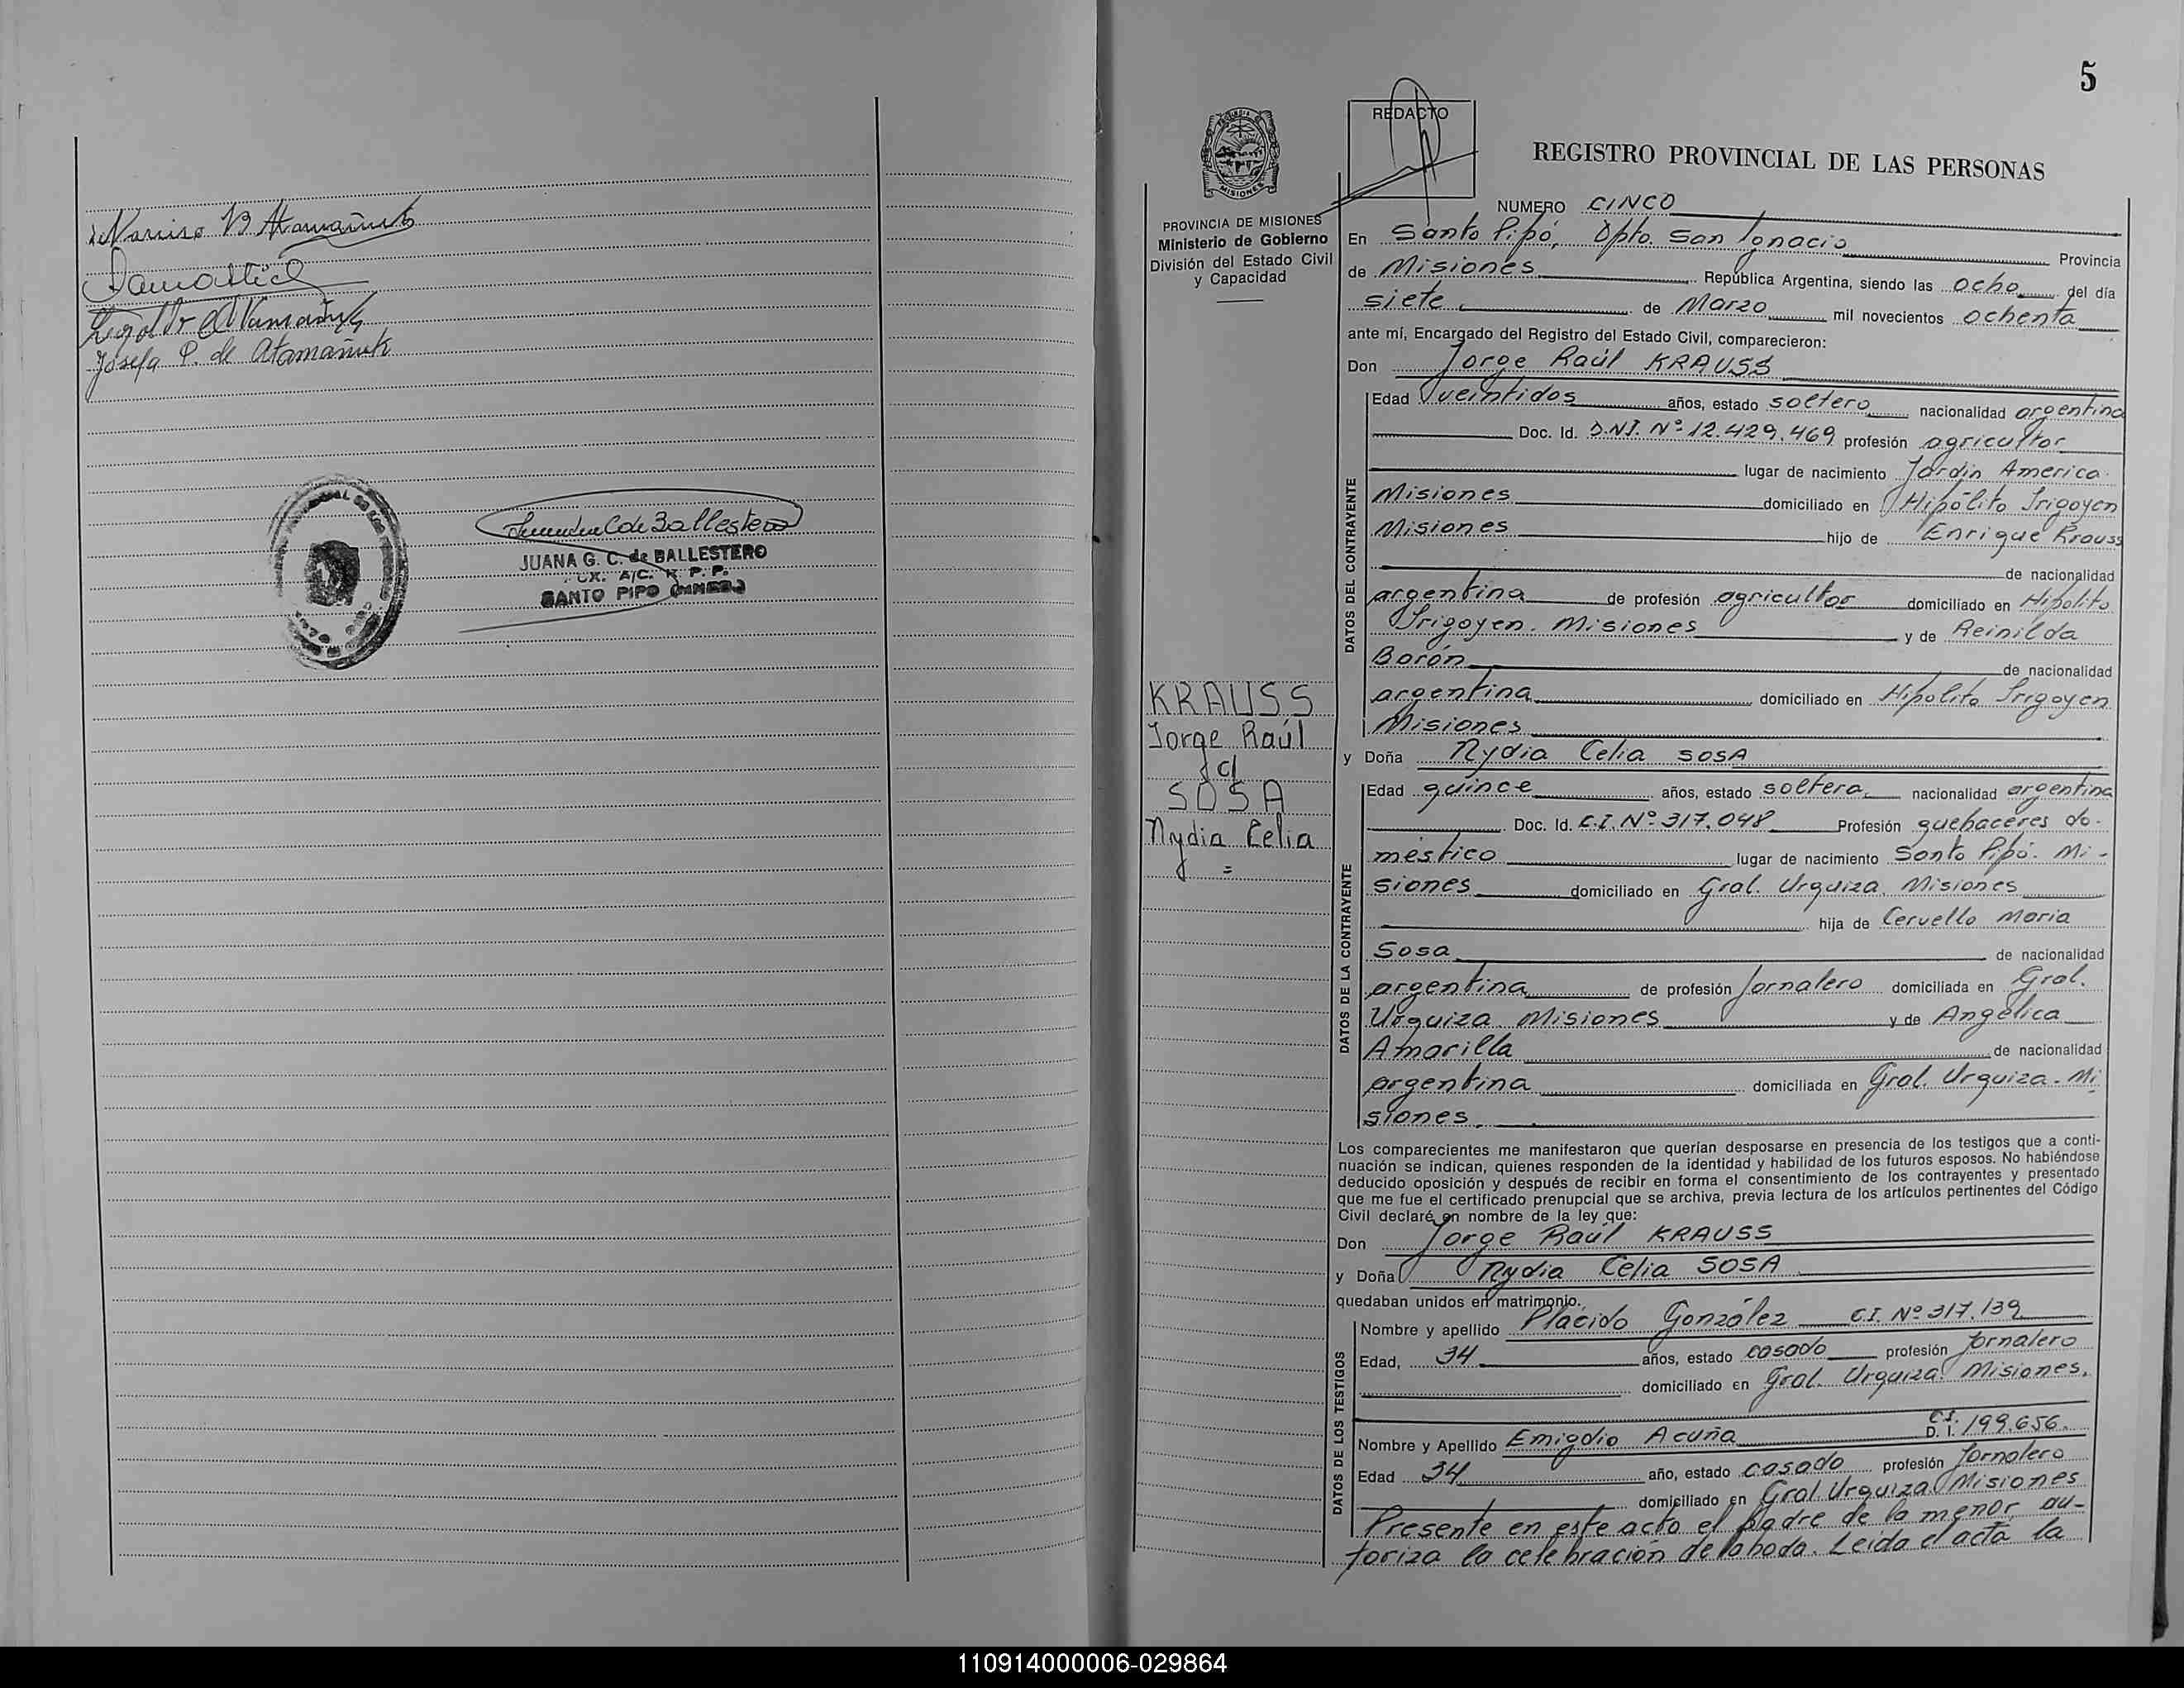 Narciso B Atamañuk
Josefa P. de Atamañuk
JUANA G. C. de BALLESTERO
A/C. R. P. P.
SANTO PIPO (MNES.)
5
REDACTO
REGISTRO PROVINCIAL DE LAS PERSONAS
MISIONES
PROVINCIA DE MISIONES
Ministerio de Gobierno
División del Estado Civil
y Capacidad
NUMERO CINCO
En Santo Pipó, Dpto. San Ignacio Provincia
de Misiones República Argentina, siendo las ocho del día
siete de Marzo mil novecientos ochenta
ante mí, Encargado del Registro del Estado Civil, comparecieron:
Don Jorge Raúl KRAUSS
DATOS DEL CONTRAYENTE
Edad veintidos años, estado soltero nacionalidad argentina
Doc. Id. D.N.I. Nº 12.429.469 profesión agricultor
lugar de nacimiento Jardín America
Misiones domiciliado en Hipólito Irigoyen
Misiones hijo de Enrique Krauss
de nacionalidad
argentina de profesión agricultor domiciliado en Hipolito
Irigoyen. Misiones y de Reinilda
Borón de nacionalidad
argentina domiciliado en Hipolito Irigoyen
Misiones
KRAUSS
Jorge Raúl
c/
SOSA
Nydia Celia
=
y Doña Nydia Celia SOSA
DATOS DE LA CONTRAYENTE
Edad quince años, estado soltera nacionalidad argentina
Doc. Id. C.I. Nº 317.048 Profesión quehaceres do-
méstico lugar de nacimiento Santo Pipó. Mi-
siones domiciliado en Gral. Urquiza. Misiones
hija de Cervello Maria
Sosa de nacionalidad
argentina de profesión Jornalero domiciliada en Gral.
Urquiza Misiones y de Angélica
Amarilla de nacionalidad
argentina domiciliada en Gral. Urquiza. Mi
siones.
Los comparecientes me manifestaron que querían desposarse en presencia de los testigos que a conti-
nuación se indican, quienes responden de la identidad y habilidad de los futuros esposos. No habiéndose
deducido oposición y después de recibir en forma el consentimiento de los contrayentes y presentado
que me fue el certificado prenupcial que se archiva, previa lectura de los artículos pertinentes del Código
Civil declaré en nombre de la ley que:
Don Jorge Raúl KRAUSS
y Doña Nydia Celia SOSA
quedaban unidos en matrimonio.
DATOS DE LOS TESTIGOS
Nombre y apellido Plácido González C.I. Nº 317.139
Edad, 34 años, estado casado profesión Jornalero
domiciliado en Gral. Urquiza. Misiones.
Nombre y Apellido Emigdio Acuña C.I. D. I. 199.656.
Edad 34 año, estado casado profesión Jornalero
domiciliado en Gral. Urquiza Misiones
Presente en este acto el padre de la menor, au-
toriza la celebración de la boda. Leida el acta la
110914000006-029864